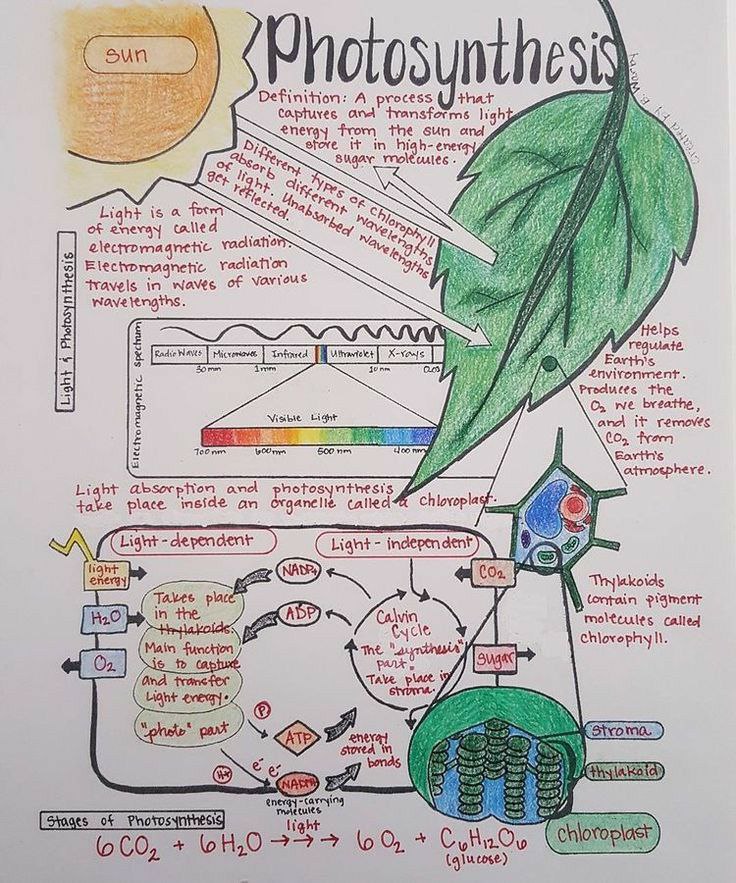 sun
Photosynthesis
created by E. Warny
Definition: A process that
captures and transforms light
energy from the sun and
store it in high-energy
sugar molecules.
Different types of chlorophyll
absorb different wavelengths
of light. Unabsorbed wavelengths
get reflected.
Light & Photosynthesis
Light is a form
of energy called
electromagnetic radiation.
Electromagnetic radiation
travels in waves of various
wavelengths.
Electromagnetic spectrum
Radio Waves Microwaves Infrared Ultraviolet X-rays
30mm 1mm 10nm 0.03
Visible Light
700nm 600nm 500nm 400n
Helps
regulate
Earth's
environment.
Produces the
O₂ we breathe,
and it removes
CO₂ from
Earth's
atmosphere.
Light absorption and photosynthesis
take place inside an organelle called a chloroplast.
Light-dependent
Light-independent
light
energy
H₂O
O₂
Takes place
in the
thylakoids.
Main function
is to capture
and transfer
Light energy.
"photo" part
NADP+
ADP
P
ATP
H+
e⁻ e⁻
NADPH
energy-carrying
molecules
Calvin
Cycle
The "synthesis"
part.
Take place in
stroma.
energy
stored in
bonds
CO₂
sugar
Thylakoids
contain pigment
molecules called
chlorophyll.
stroma
thylakoid
chloroplast
Stages of Photosynthesis
light
6CO₂ + 6H₂O →→→ 6O₂ + C₆H₁₂O₆
(glucose)